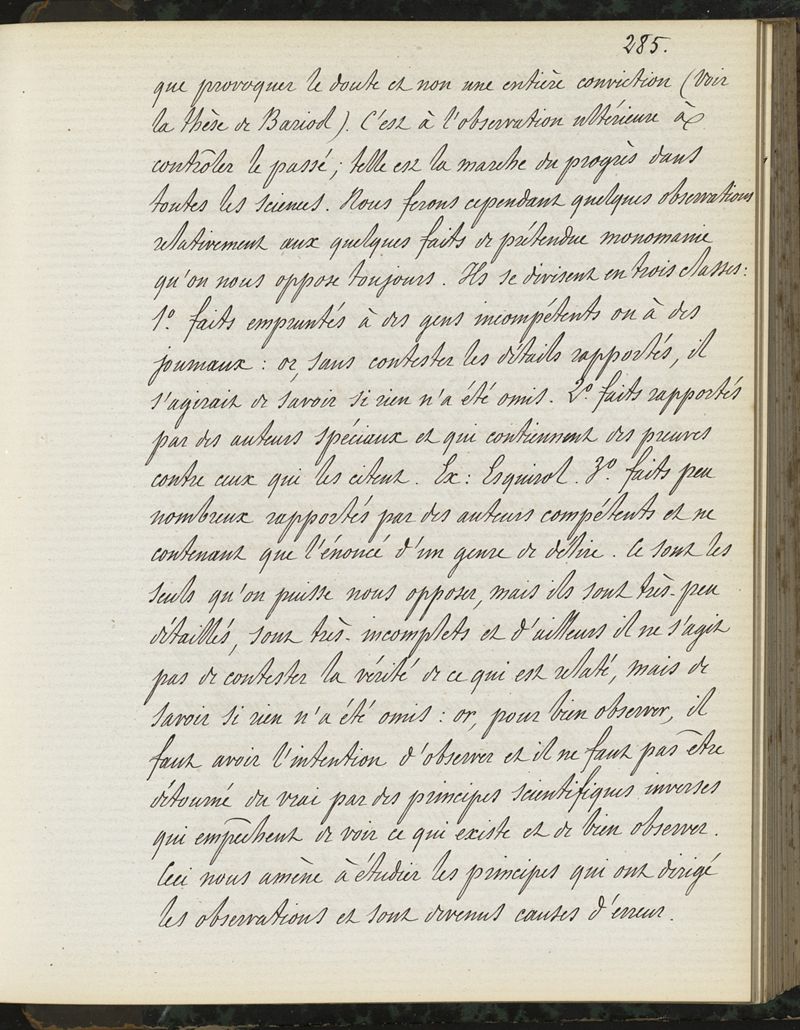 285.
que provoquer le doute et non une entière conviction (Voir
la thèse de Bariod). C'est à l'observation ultérieure à
contrôler le passé ; telle est la marche du progrès dans
toutes les sciences. Nous ferons cependant quelques observations
relativement aux quelques faits de prétendue monomanie
qu'on nous oppose toujours. Ils se divisent en trois classes :
1º. faits empruntés à des gens incompétents ou à des
journaux : or, sans contester les détails rapportés, il
s'agirait de savoir si rien n'a été omis. 2º. faits rapportés
par des auteurs spéciaux et qui contiennent des preuves
contre ceux qui les citent. Ex : Esquirol. 3º. faits peu
nombreux rapportés par des auteurs compétents et ne
contenant que l'énoncé d'un genre de délire. Ce sont les
seuls qu'on puisse nous opposer, mais ils sont très-peu
détaillés, sont très-incomplets et d'ailleurs il ne s'agit
pas de contester la vérité de ce qui est relaté, mais de
savoir si rien n'a été omis : or, pour bien observer, il
faut avoir l'intention d'observer et il ne faut pas être
détourné du vrai par des principes scientifiques inverses
qui empêchent de voir ce qui existe et de bien observer.
Ceci nous amène à étudier les principes qui ont dirigé
les observations et sont devenus causes d'erreur.